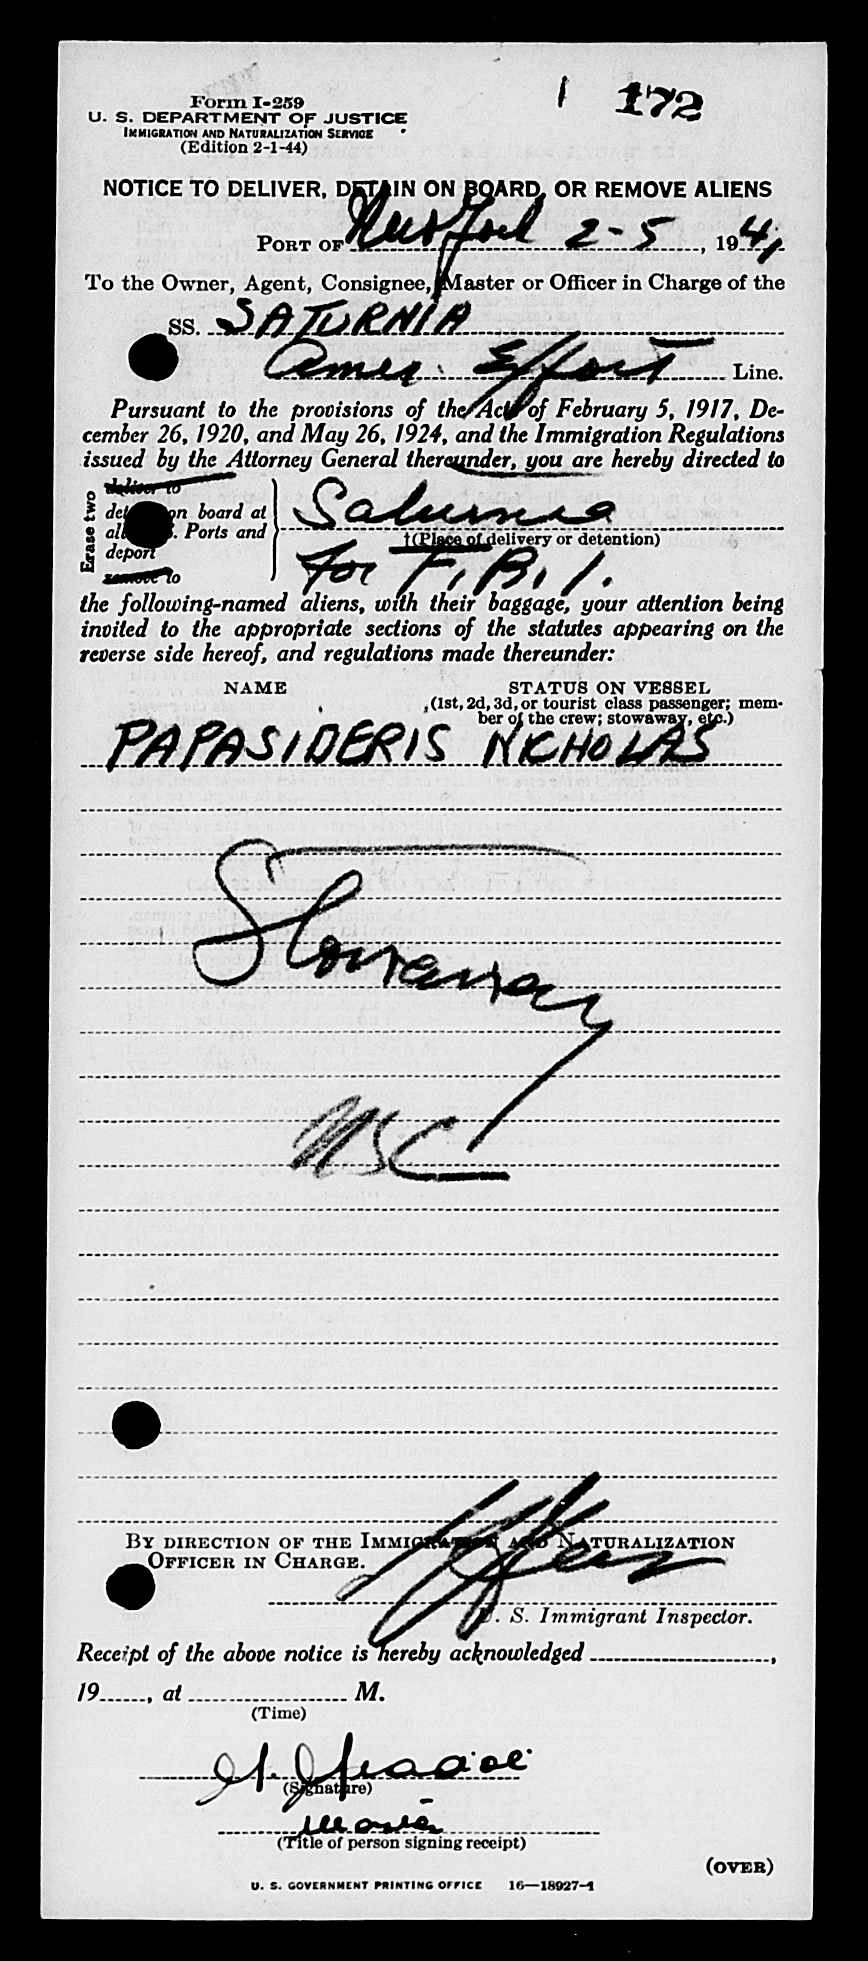 1 172
Form I-259
U. S. DEPARTMENT OF JUSTICE
IMMIGRATION AND NATURALIZATION SERVICE
(Edition 2-1-44)
NOTICE TO DELIVER, DETAIN ON BOARD, OR REMOVE ALIENS
PORT OF New York 2-5, 194
To the Owner, Agent, Consignee, Master or Officer in Charge of the
SS. SATURNIA
Amer. Effort Line.
Pursuant to the provisions of the Act of February 5, 1917, De-
cember 26, 1920, and May 26, 1924, and the Immigration Regulations
issued by the Attorney General thereunder, you are hereby directed to
Erase two
deliver to
on board at
Ports and
deport
remove to
Saturnia
†(Place of delivery or detention)
for F.B.I.
the following-named aliens, with their baggage, your attention being
invited to the appropriate sections of the statutes appearing on the
reverse side hereof, and regulations made thereunder:
NAME STATUS ON VESSEL
(1st, 2d, 3d, or tourist class passenger; mem-
ber of the crew; stowaway, etc.)
PAPASIDERIS NICHOLAS
Stowaway
NSC
BY DIRECTION OF THE IMMIGRATION AND NATURALIZATION
OFFICER IN CHARGE.
U. S. Immigrant Inspector.
Receipt of the above notice is hereby acknowledged
19, at M.
(Time)
(Signature)
Master
(Title of person signing receipt)
(OVER)
U. S. GOVERNMENT PRINTING OFFICE 16—18927-1